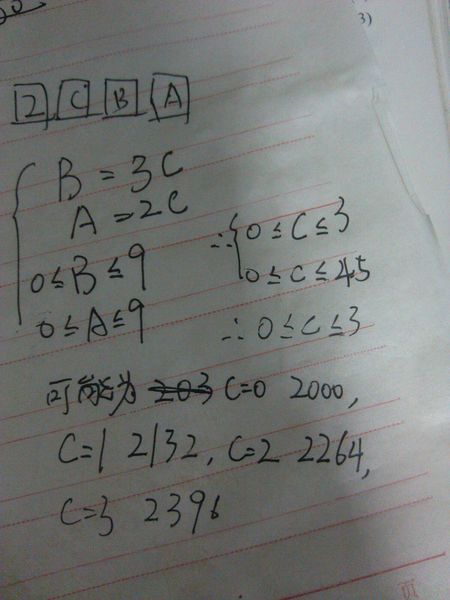 3)
2 C B A
B = 3C
A = 2C
0 ≤ B ≤ 9
0 ≤ A ≤ 9
∴ { 0 ≤ C ≤ 3
0 ≤ C ≤ 4.5
∴ 0 ≤ C ≤ 3
可能为 203 C=0 2000,
C=1 2132, C=2 2264,
C=3 2396
页